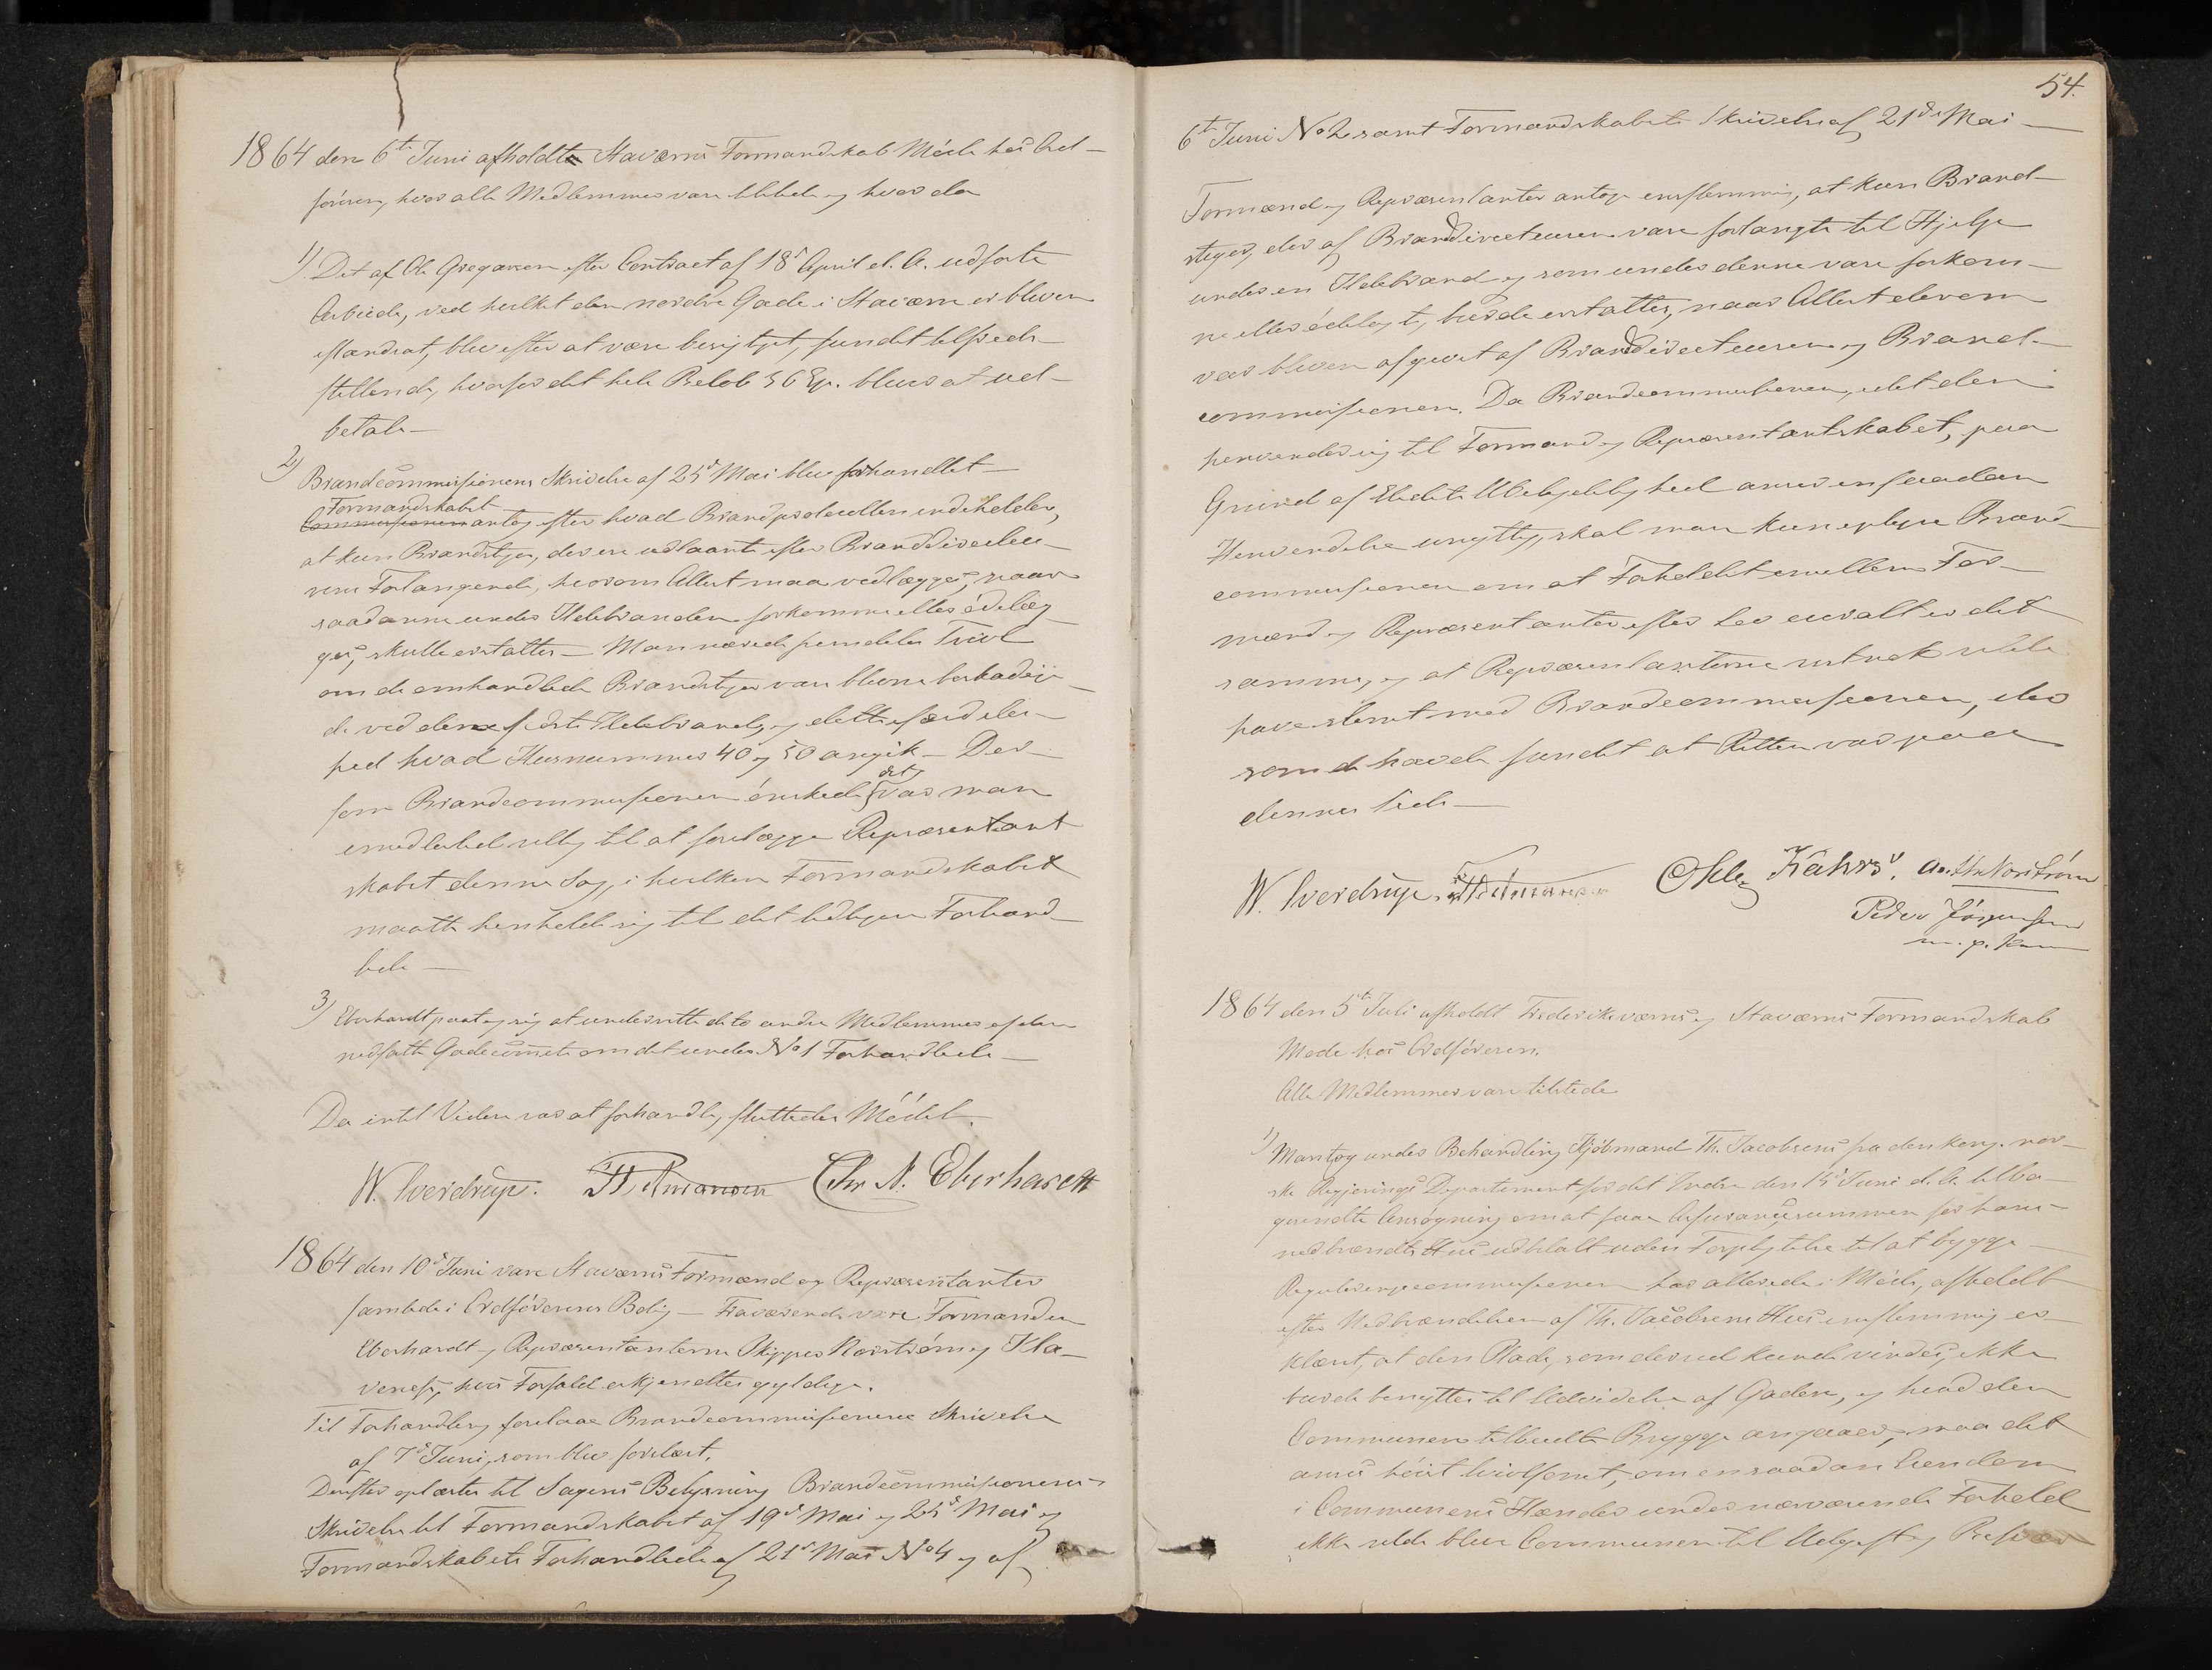 1864 den 6te Juni afholdte Staværns Formandskab Möde hos Ord-
föreren, hvor alle Medlemmer vare tilstede og hvor da
1) Det af Ole Gregersen efter Contract af 18de April d. A. udförte
Arbeide, ved hvilket den nordre Gade i Staværn er bleven
istandsat, blev efter at være besigtiget, fundet tilfreds-
stillende, hvorfor det hele Beløb 36 Sp. blev at ud-
betale —
2)
Brandcommissionens Skrivelse af 25de Mai blev forhandlet —
Formandskabet
Commissionen antog efter hvad Brandprotocollen indeholder,
at kun Brandstiger, der ere udlaante efter Branddirecteu-
rens Forlangende, hvorom Attest maa vedlægges, naar
saadanne under Ildebranden forkomme eller ödelæg-
ges, skulle erstattes — Man nærede fremdeles Tvivl
om de omhandlede Brandstiger vare blevne beskadige-
de ved den sidste Ildebrand, og dette især i den-
hed hvad Husnummer 40 og 50 angik — Der-
det
som Brandcommissionen önskede var man
imidlertid villig til at forelægge Repræsentant
skabet denne Sag, i hvilken Formandskabet
maatte henholde sig til det tidligere Forhand-
lede —
3)
Eberhardt paatog sig at underrette de to andre Medlemmer af den
nedsatte Gadecomite om det under No 1 Forhandlede —
Da intet Videre var at forhandle, sluttedes Mödet.
W. Sverdrup. Chr N. Eberhardt
1864 den 10de Juni vare Staværns Formænd og Repræsentanter
samlede i Ordförerens Bolig — Fraværende vare Formanden
Eberhardt og Repræsentanterne Skipper Norström og Kla-
veness, hvis Forfald erkjendtes gyldige.
Til Forhandling forelaae Brandcommissionens Skrivelse
af 7de Juni, som blev forelæst.
Derefter oplæstes til Sagens Belysning Brandcommissionens
Skrivelse til Formandskabet af 19de Mai og 25de Mai og
Formandskabets Forhandlede af 21de Mai No 4 og af
54.
6te Juni No 2 samt Formandskabets Skrivelse af 21de Mai —
Formænd og Repræsentanter antoge enstemmig, at kun Brand-
stiger, der af Branddirecteuren vare forlangte til Hjelp
under en Ildebrand og som under denne vare forkom-
ne eller ödelagte, burde erstattes, naar Attest derom
var bleven afgivet af Branddirecteuren og Brand-
commissionen. Da Brandcommissionen, uden
henvendes sig til Formand og Repræsentantskabet, paa
Grund af
Henvendelse unyttig, skal man kun oplyse Brand-
commissionen om at Forholdet imellem For-
mænd og Repræsentanter efter Lov overalt er det
samme, og at Repræsentanterne vilde
have stemt med Brandcommissionen, der-
som de havde fundet at Retten var paa
dennes Side —
W. Sverdrup. Kahrs. Norström
Peder Jörgensen
m. p. Pen
1864 den 5te Juli afholdt Frederiksværns og Staværns Formandskab
Møde hos Ordföreren.
Alle Medlemmer vare tilstede
1)
Man tog under Behandling Kjöbmand Th. Jacobsens fra den kong. nor-
ske Regjerings Departement for det Indre den 15de Juni d. A. tilba-
gesendte Ansögning om at faae Assurancesummen for hans
nedbrændte Hus udbetalt uden Forpligtelse til at bygge
Reguleringscommissionen har allerede i Möde, afholdt
efter Nedbrændelsen af Th. Jacobsens Hus enstemmig er-
klæret, at den Plads, som derved kunde vindes, ikke
burde benyttes til Udvidelse af Gaden, og hvad den
Communen tilbudte Brygge angaaer, maa det
ansees höist tvivlsomt, om en saadan Eiendom
i Communens Hænder under nærværende Forhold
ikke vilde blive Communen til Udgift og